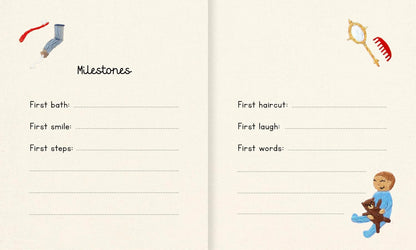 Milestones
First bath:
First smile:
First steps:
First haircut:
First laugh:
First words: